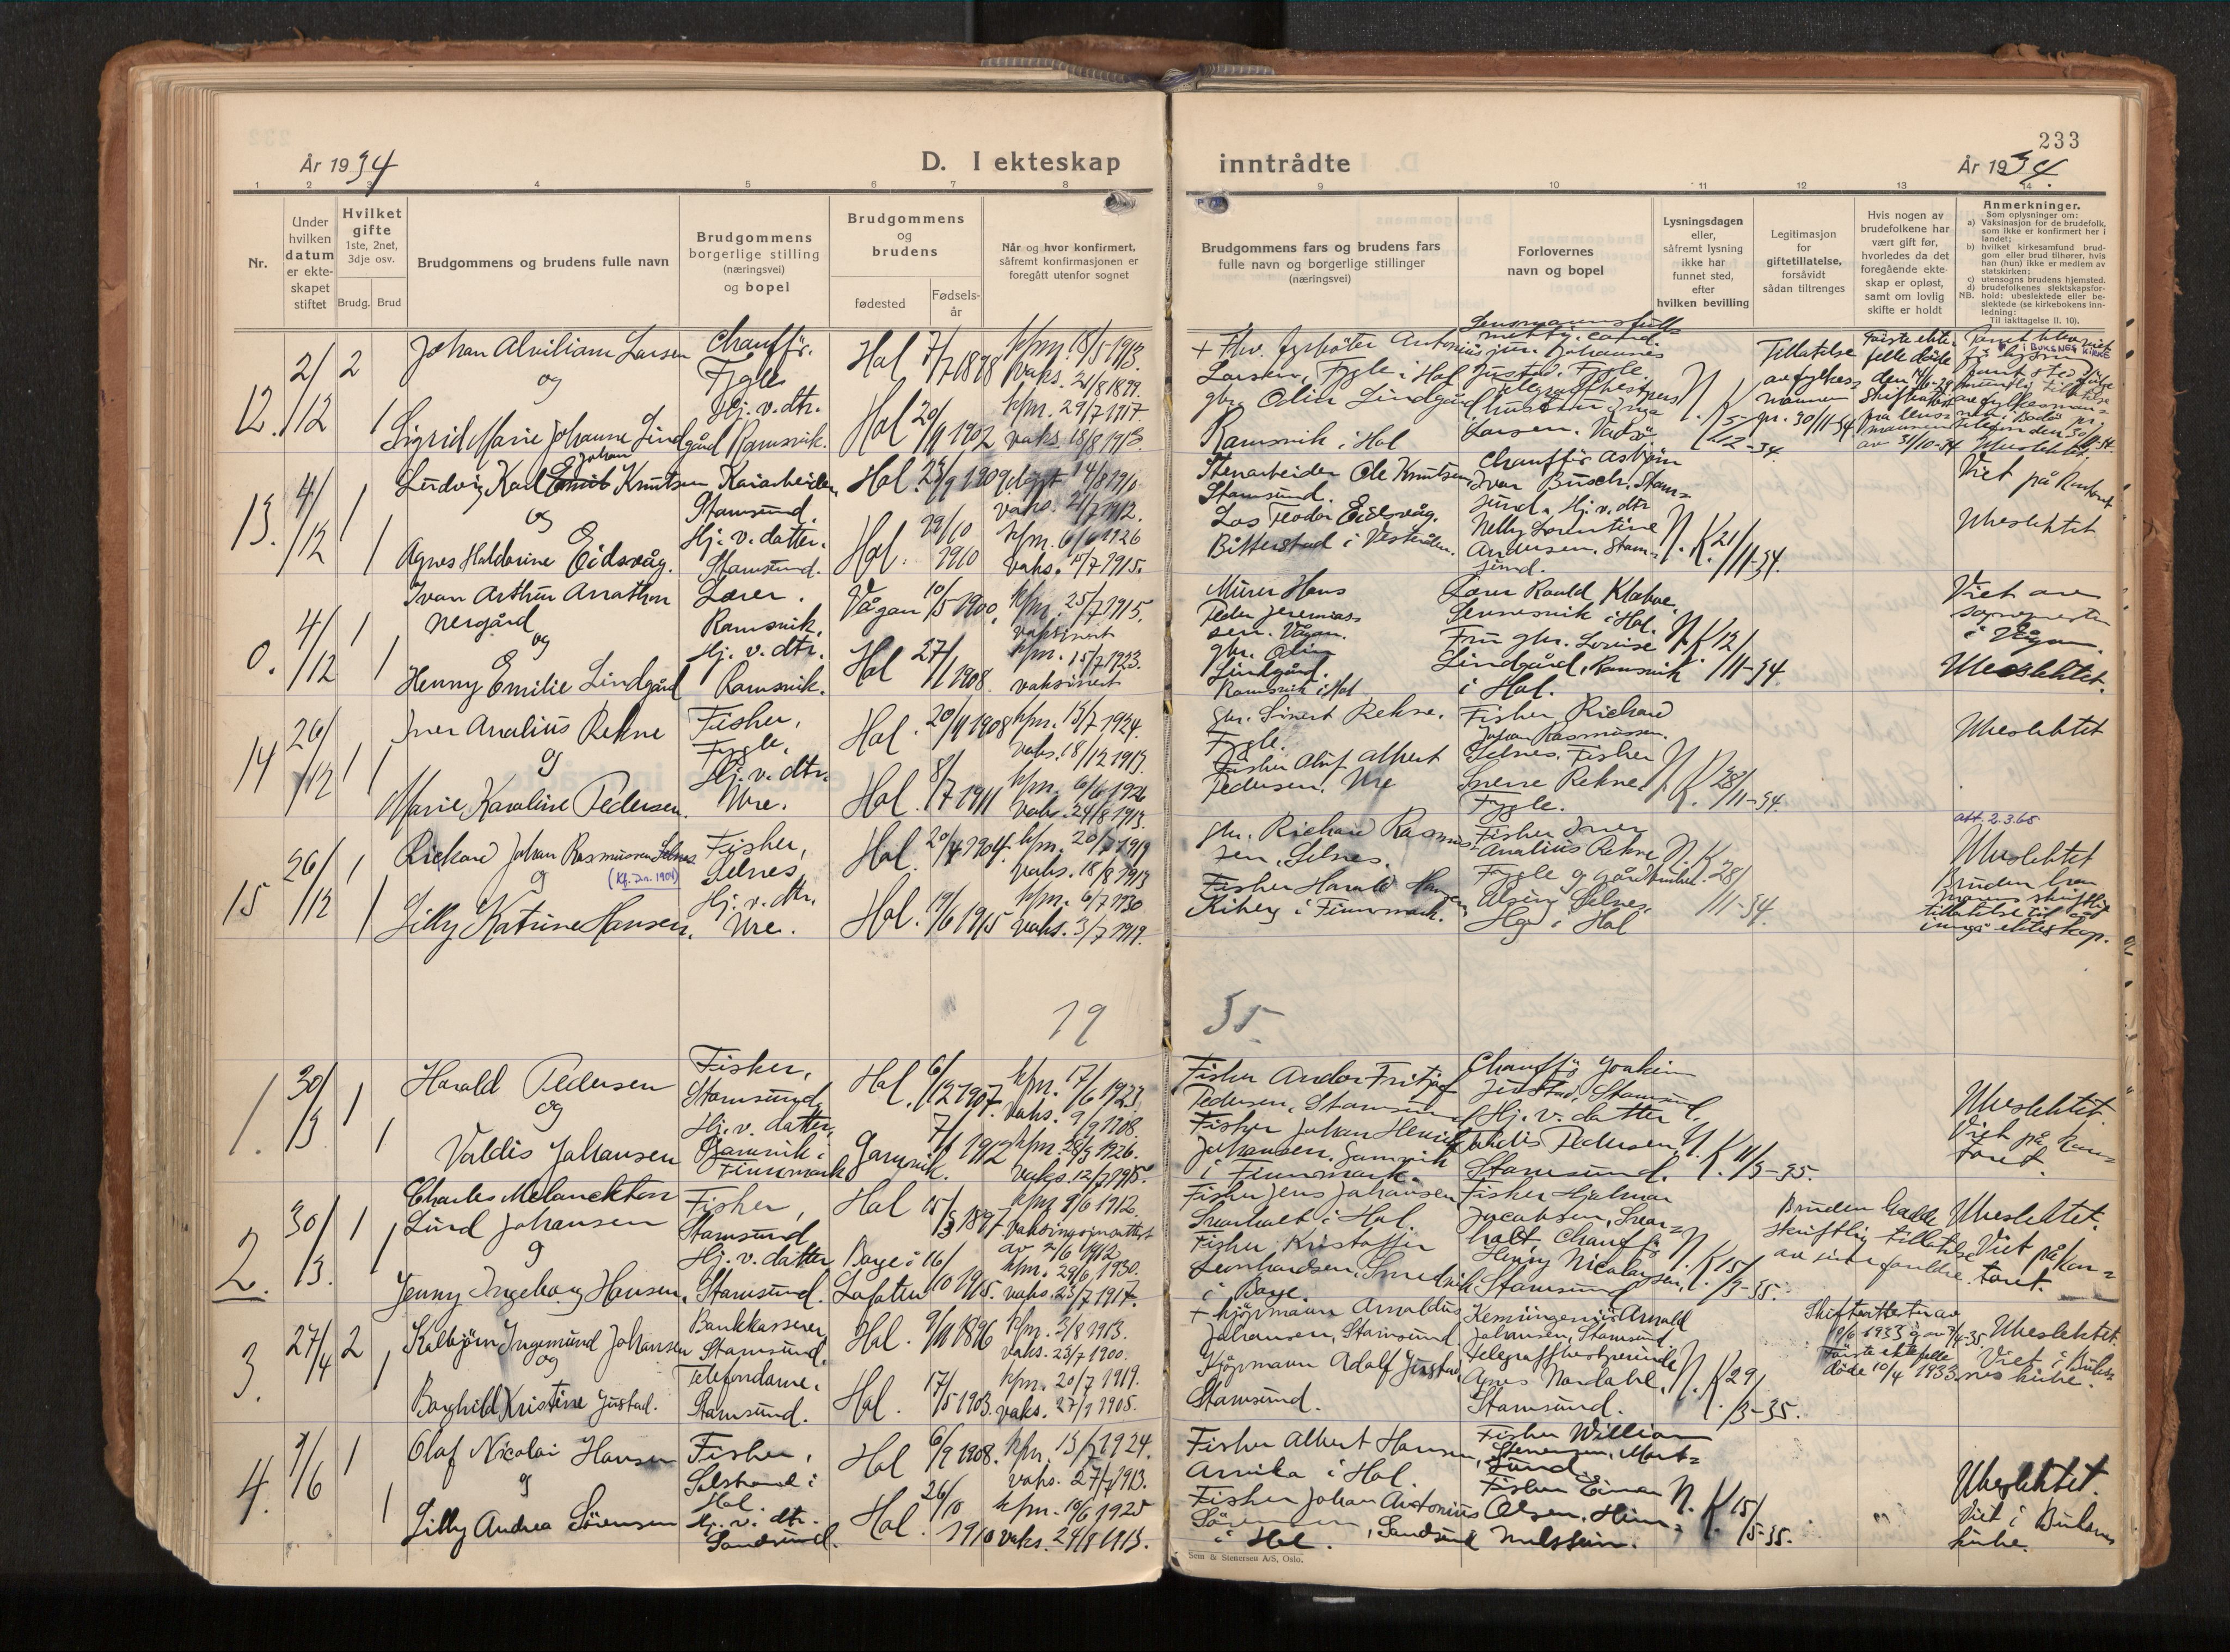 233
År 1934
D. I ekteskap
inntrådte
År 1934.
1 2 3 4 5 6 7 8 9 10 11 12 13 14
Nr.
Under
hvilken
datum
er ekte-
skapet
stiftet
Hvilket
gifte
1ste, 2net,
3dje osv.
Brudg. Brud
Brudgommens og brudens fulle navn
Brudgommens
borgerlige stilling
(næringsvei)
og bopel
Brudgommens
og
brudens
fødested
Fødsels-
år
Når og hvor konfirmert,
såfremt konfirmasjonen er
foregått utenfor sognet
Brudgommens fars og brudens fars
fulle navn og borgerlige stillinger
(næringsvei)
Forlovernes
navn og bopel
Lysningsdagen
eller,
såfremt lysning
ikke har
funnet sted,
efter
hvilken bevilling
Legitimasjon
for
giftetillatelse,
forsåvidt
sådan tiltrenges
Hvis nogen av
brudefolkene har
vært gift før,
hvorledes da det
foregående ekte-
skap er opløst,
samt om lovlig
skifte er holdt
Anmerkninger.
Som oplysninger om:
a) Vaksinasjon for de brudefolk,
som ikke er konfirmert her i
landet;
b) hvilket kirkesamfund brud-
gom eller brud tilhører, hvis
han (hun) ikke er medlem av
statskirken;
c) utensogns brudens hjemsted.
d) brudefolkenes slektskapsfor-
NB. hold: ubeslektede eller be-
slektede (se kirkebokens inn-
ledning:
Til iakttagelse II. 10).
12. 2/12 2 1
Johan Alvilian Larsen
og
Sigrid Marie Johanne Lindgård
Chauffør.
Fygle
Hj. v. dtr.
Ramsvik.
Hol 7/7 1898
Hol 20/9 1902
kfm. 18/5 1913.
vaks. 21/8 1899.
kfm. 29/7 1917
vaks. 18/8 1913.
Larsen, Fygle i Hol
gbr. Odin Lindgård
Ramsvik i Hol
Justad, Fygle.
Larsen. Vadsø.
N. K. 5/12-34.
Tillatelse
av fylkes-
mannen
pr. 30/11-34
BUKSNES KIRKE
Ubeslektet
13. 4/12 1 1
Ludvig Karl Johan Knutsen
og
Agnes Haldorine Eidsvåg.
Kaiarbeider
Stamsund.
Hj. v. datter.
Stamsund.
Hol. 23/9 1909
Hol. 29/10 1910
døpt 14/8 1910
vaks. 21/7 1912.
kfm. 6/6 1926
vaks. 15/7 1915.
Stenarbeider Ole Knutsen
Stamsund.
Los Teodor Eidsvåg.
Bitterstad i Vesterålen.
Chauffør Asbjørn
Ivar Busch, Stam=
sund. Hj. v. dtr
Nelly Lorentine
Andersen. Stam=
sund.
N. K. 21/11-34.
Viet på kontoret
Ubeslektet
0. 4/12 1 1
Ivan Arthur Arnathon
Nergård
og
Henny Emilie Lindgård
Lærer.
Ramsvik.
Hj. v. dtr.
Ramsvik.
Vågan 10/5 1900.
Hol 27/1 1908
kfm. 25/7 1915.
vaksinert
kfm. 15/7 1923.
vaksinert
Murer Hans
Peder Jeremias=
sen. Vågan.
gbr. Odin
Lindgård.
Ramsvik i Hol
Lærer Roald Klakve.
Sennesvik i Hol.
Fru gbr. Lovise
Lindgård, Ramsvik
i Hol.
N. K. 12/11-34
Viet av
sognepresten
i Vågan.
Ubeslektet.
14 26/12 1 1
Iver Analius Rekne
og
Marie Karoline Pedersen.
Fisker,
Fygle.
Hj. v. dtr.
Ure.
Hol. 20/9 1908
Hol. 8/7 1911
kfm. 13/7 1924.
vaks. 18/12 1913.
kfm. 6/6 1926
vaks. 24/8 1913.
gbr. Sivert Rekne.
Fygle.
Fisker Oluf Albert
Pedersen. Ure
Fisker Richard
Johan Rasmussen.
Selnes. Fisker
Sverre Rekne
Fygle.
N. K. 28/11-34.
Ubeslektet
15 26/12 1 1
Rickard Johan Rasmussen Selnes
(Kf. Inr. 1904)
og
Lilly Katrine Hansen.
Fisker,
Selnes
Hj. v. dtr.
Ure.
Hol. 20/4 1904.
Hol. 19/6 1915
kfm. 20/7 1919
vaks. 18/8 1913
kfm. 6/7 1930
vaks. 3/7 1919.
gbr. Richard Rasmus=
sen. Selnes.
Fisker Harald Hansen
Kiberg i Finnmark.
Fisker Iver
Analius Rekne
Fygle og
Selnes.
Hag i Hol
N. K. 28/11-34.
att. 2.3.65
Ubeslektet
Bruden har
morens skriftlig
tillatelse til å
inngå ekteskap.
19 35
1. 30/3 1 1
Harald Pedersen
og
Valdis Johansen
Fisker,
Stamsund
Hj. v. datter,
Gamvik i
Finnmark
Hol. 6/12 1907.
Gamvik. 7/1 1912
kfm. 17/6 1923.
vaks. 9/9 1908.
kfm. 28/3 1926.
vaks. 12/7 1915.
Fisker Andor Fritjof
Pedersen, Stamsund
Fisker Johan Henrik
Johansen, Gamvik
i Finnmark.
Chauffør Joakim
Justad, Stamsund
Hj. v. datter
Pedersen,
Stamsund.
N. K. 11/3-35.
Ubeslektet
Viet på kon=
toret.
2. 30/3. 1 1
Charles Melanckton
Lund Johansen
og
Jenny Ingeborg Hansen.
Fisker,
Stamsund
Hj. v. datter
Stamsund.
Hol 15/3 1897
Borge i Lofoten 16/10 1915.
kfm. 9/6 1912.
av 7/6 1912
kfm. 29/6 1930.
vaks. 23/7 1917.
Fisker Jens Johansen
Svarholt i Hol.
Fisker Kristoffer
Leonhardsen, Smedvik
i Borge.
Fisker Hjalmar
Jacobsen, Svar=
holt Chauffør
Henry Nicolaysen,
Stamsund
N. K. 15/3-35.
Bruden hadde
skriftlig tillatelse
av sine foreldre.
Ubeslektet.
Viet på kon=
toret.
3. 27/4 2 1
Kolbjörn Ingemund Johansen
og
Borghild Kristine Justad.
Bankkasserer
Stamsund.
Telefondame.
Stamsund.
Hol. 9/11 1896
Hol. 17/5 1903.
kfm. 3/8 1913.
vaks. 23/7 1900.
kfm. 20/7 1919.
vaks. 27/9 1905.
+ kjøpmann Arnoldus
Johansen, Stamsund
Kjøpmann Adolf Justad
Stamsund.
Kemiingeniør Arnold
Johansen, Stamsund
Telegrafbestyrerinde
Agnes Nordahl.
Stamsund.
N. K. 29/3-35.
Skifteattester av
19/6 1933 og av 3/4-35
Første ektefelle
døde 10/4 1933
Ubeslektet.
Viet i Buks=
nes kirke.
4. 9/6 1 1
Olaf Nicolai Hansen
og
Lilly Andrea Sörensen
Fisker,
Solstrand i
Hol.
Hj. v. dtr.
Sandsund.
Hol 6/9 1908.
Hol. 26/10 1910
kfm. 13/7 1924.
vaks. 27/7 1913.
kfm. 10/6 1925
vaks. 24/8 1913.
Fisker Albert Hansen,
i Hol.
Fisker Johan Antonius
Sörensen, Sandsund
i Hol.
Fisker William
Stenersen, Mort=
sund.
Fisker Einar
Olsen,
N. K. 15/5-35.
Ubeslektet.
Viet i Buksnes
kirke.
Sem & Stenersen A/S, Oslo.